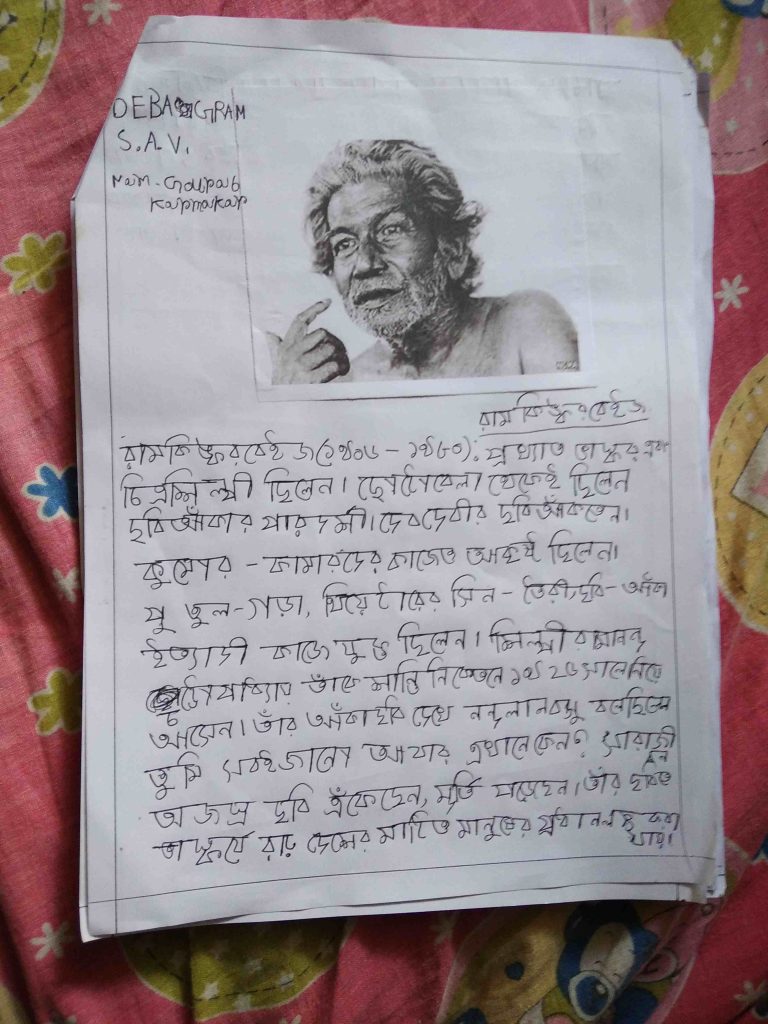 DEBAGRAM
S.A.V.
Nam - Gourab
Karmakar
রামকিঙ্করবেইজ
রামকিঙ্করবেইজ (১৯০৬ - ১৯৮০): প্রখ্যাত ভাস্কর এবং
চিত্রশিল্পী ছিলেন। ছোটোবেলা থেকেই ছিলেন
ছবি আঁকার পারদর্শী। দেবদেবীর ছবি আঁকতেন।
কুমোর - কামারদের কাজেও আগ্রহী ছিলেন।
পুতুল - গড়া, থিয়েটারের সিন - তৈরী, ছবি - আঁকা
ইত্যাদী কাজে যুক্ত ছিলেন। শিল্পী রামানন্দ
চট্টোপাধ্যায় তাঁকে শান্তিনিকেতনে ১৯২৫ সালে নিয়ে
আসেন। তাঁর আঁকা ছবি দেখে নন্দলাল বসু বলেছিলেন
তুমি সবই জানো আবার এখানে কেন? সারাজীবন
অজস্র ছবি এঁকেছেন, মূর্তি গড়েছেন। তাঁর ছবিও
ভাস্কর্যে রাঢ় দেশের মাটিও মানুষের প্রধান লক্ষ করা
যায়।